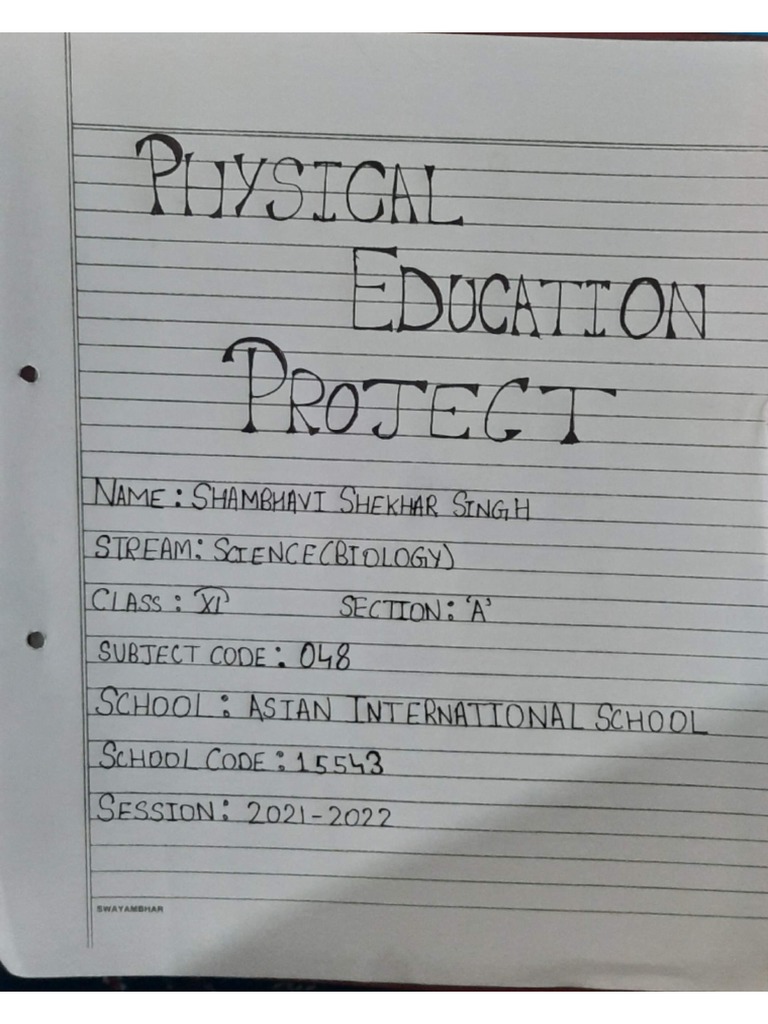 PHYSICAL
EDUCATION
PROJECT
NAME: SHAMBHAVI SHEKHAR SINGH
STREAM: SCIENCE(BIOLOGY)
CLASS: XI SECTION: 'A'
SUBJECT CODE: 048
SCHOOL: ASIAN INTERNATIONAL SCHOOL
SCHOOL CODE: 15543
SESSION: 2021-2022
SWAYAMBHAR